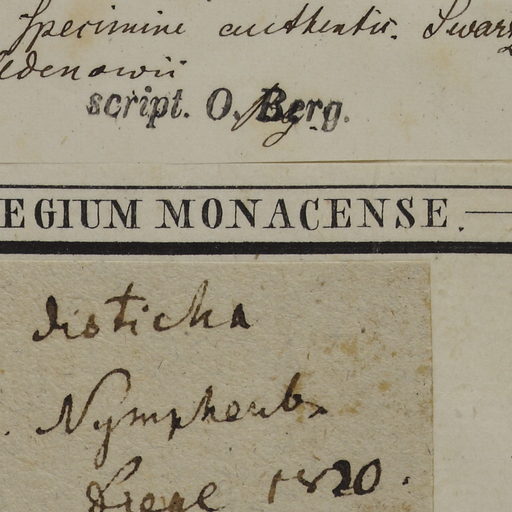 Specimine authentic. Swar
denowii
script. O. Berg.
EGIUM MONACENSE.
disticha
Nymphenb.
1820.